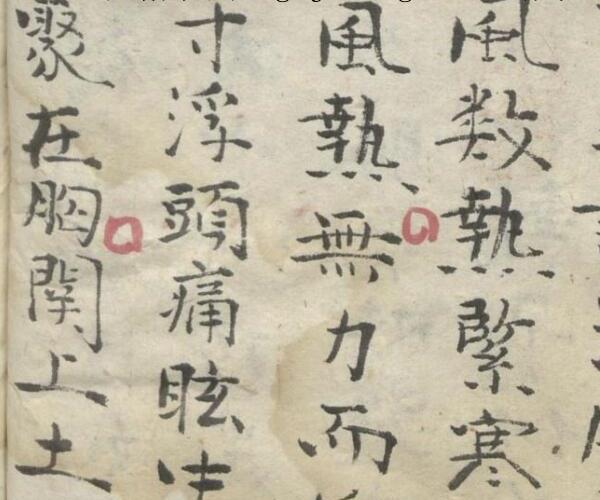 風数熱緊寒
風熱無力而
寸浮頭痛眩中
聚在胸関上土